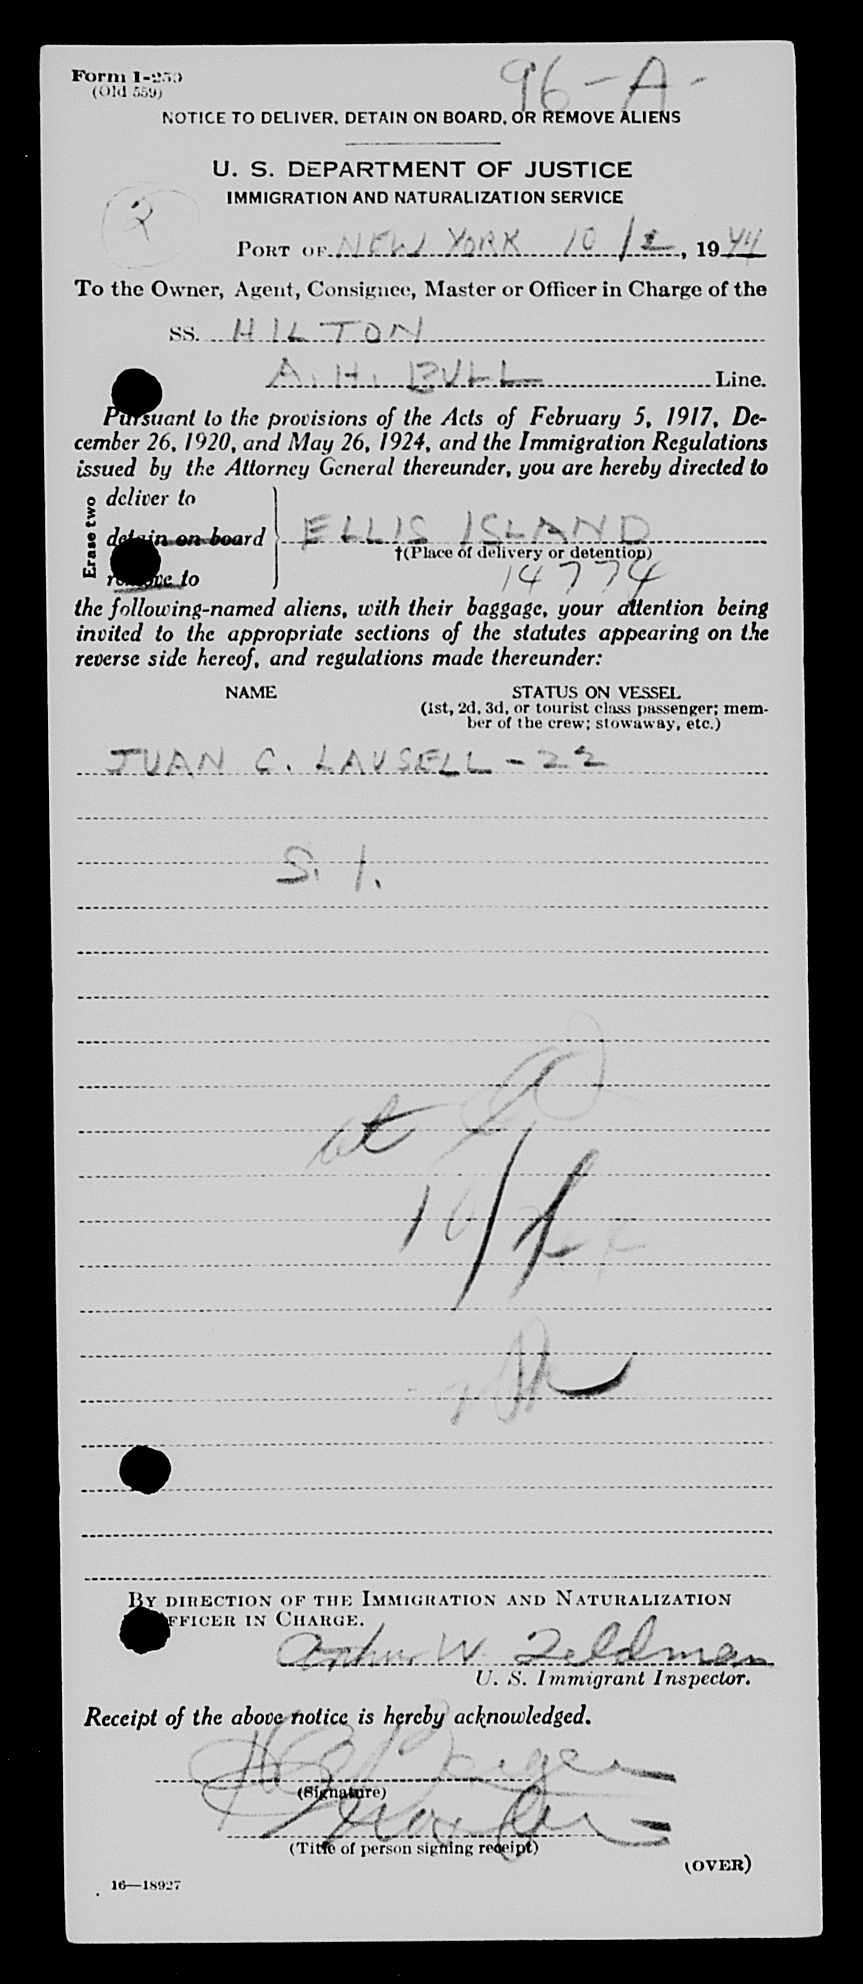 Form I-259
(Old 559)
96-A-
NOTICE TO DELIVER, DETAIN ON BOARD, OR REMOVE ALIENS
U. S. DEPARTMENT OF JUSTICE
IMMIGRATION AND NATURALIZATION SERVICE
2
PORT OF NEW YORK 10/2, 1944
To the Owner, Agent, Consignee, Master or Officer in Charge of the
SS. HILTON
A. H. BULL Line.
Pursuant to the provisions of the Acts of February 5, 1917, De-
cember 26, 1920, and May 26, 1924, and the Immigration Regulations
issued by the Attorney General thereunder, you are hereby directed to
Erase two
deliver to
detain on board ELLIS ISLAND
†(Place of delivery or detention)
remove to 14774
the following-named aliens, with their baggage, your attention being
invited to the appropriate sections of the statutes appearing on the
reverse side hereof, and regulations made thereunder:
NAME STATUS ON VESSEL
(1st, 2d, 3d, or tourist class passenger; mem-
ber of the crew; stowaway, etc.)
JUAN C. LAUSELL - 22
S. I.
at
10/2
BY DIRECTION OF THE IMMIGRATION AND NATURALIZATION
OFFICER IN CHARGE.
Arthur W. Feldman
U. S. Immigrant Inspector.
Receipt of the above notice is hereby acknowledged.
(Signature)
(Title of person signing receipt)
(OVER)
16—18927